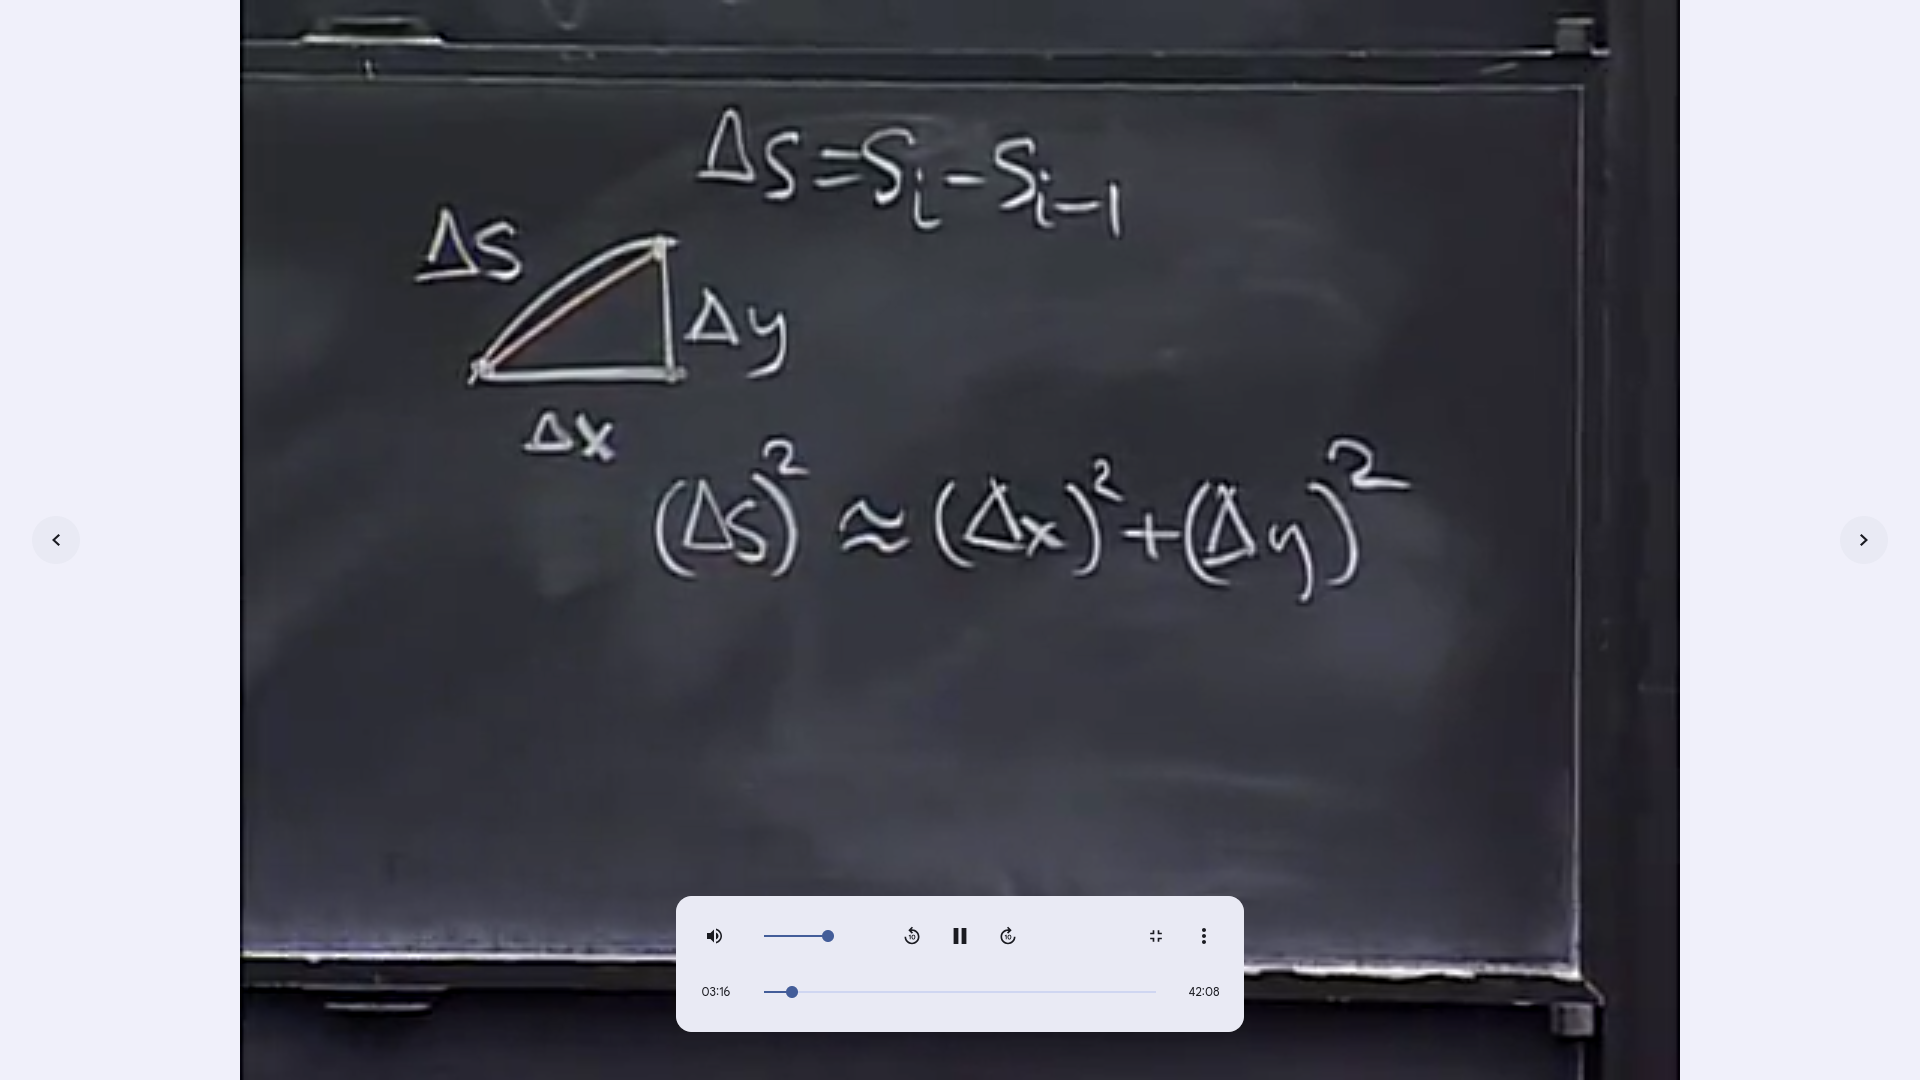 Δs = sᵢ - sᵢ₋₁
Δs
Δy
Δx
(Δs)² ≈ (Δx)² + (Δy)²
10
10
03:16
42:08